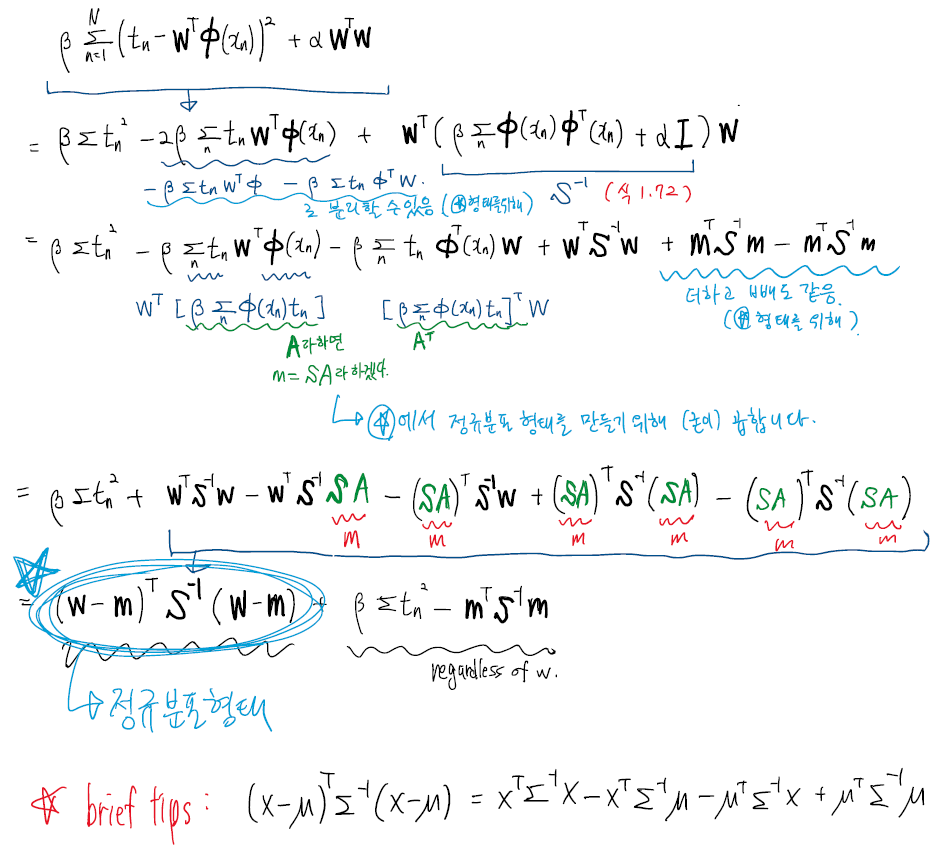 β Σ_{n=1}^{N} (t_n - W^T φ(x_n))² + α W^T W
= β Σ t_n² - 2β Σ_n t_n W^T φ(x_n) + W^T ( β Σ_n φ(x_n) φ^T(x_n) + α I ) W
- β Σ t_n W^T φ - β Σ t_n φ^T W. S^{-1} (식 1.72)
로 분리할 수 있음 (☆형태를 위해)
= β Σ t_n² - β Σ_n t_n W^T φ(x_n) - β Σ_n t_n φ^T(x_n) W + W^T S^{-1} W + m^T S^{-1} m - m^T S^{-1} m
더하고 빼도 같음.
(☆형태를 위해).
W^T [β Σ_n φ(x_n) t_n] [β Σ_n φ(x_n) t_n]^T W
A라하면 A^T
m = SA라 하겠다.
↳ ☆에서 정규분포 형태를 만들기 위해 (굳이) 곱합니다.
= β Σ t_n² + W^T S^{-1} W - W^T S^{-1} SA - (SA)^T S^{-1} W + (SA)^T S^{-1} (SA) - (SA)^T S^{-1} (SA)
m m m m m m
☆
= (W - m)^T S^{-1} (W - m) + β Σ t_n² - m^T S^{-1} m
regardless of w.
↳ 정규분포형태
☆ brief tips: (x-μ)^T Σ^{-1} (x-μ) = x^T Σ^{-1} x - x^T Σ^{-1} μ - μ^T Σ^{-1} x + μ^T Σ^{-1} μ